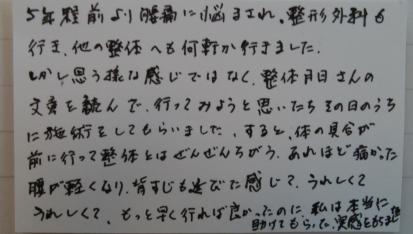 5年程前より腰痛に悩まされ。整形外科も
行き、他の整体へも何軒か行きました。
しかし思う様な感じではなく、整体月日さんの
文章を読んで、行ってみようと思いたち その日のうち
に施術をしてもらいました、すると、体の具合が
前に行って整体とはぜんぜんちがう、あれほど痛かった
腰が軽くなり、背すじも延びた感じで、うれしくて
うれしくて、もっと早く行れば良かったのに 私は本当に
助けてもらった、実感をもちました